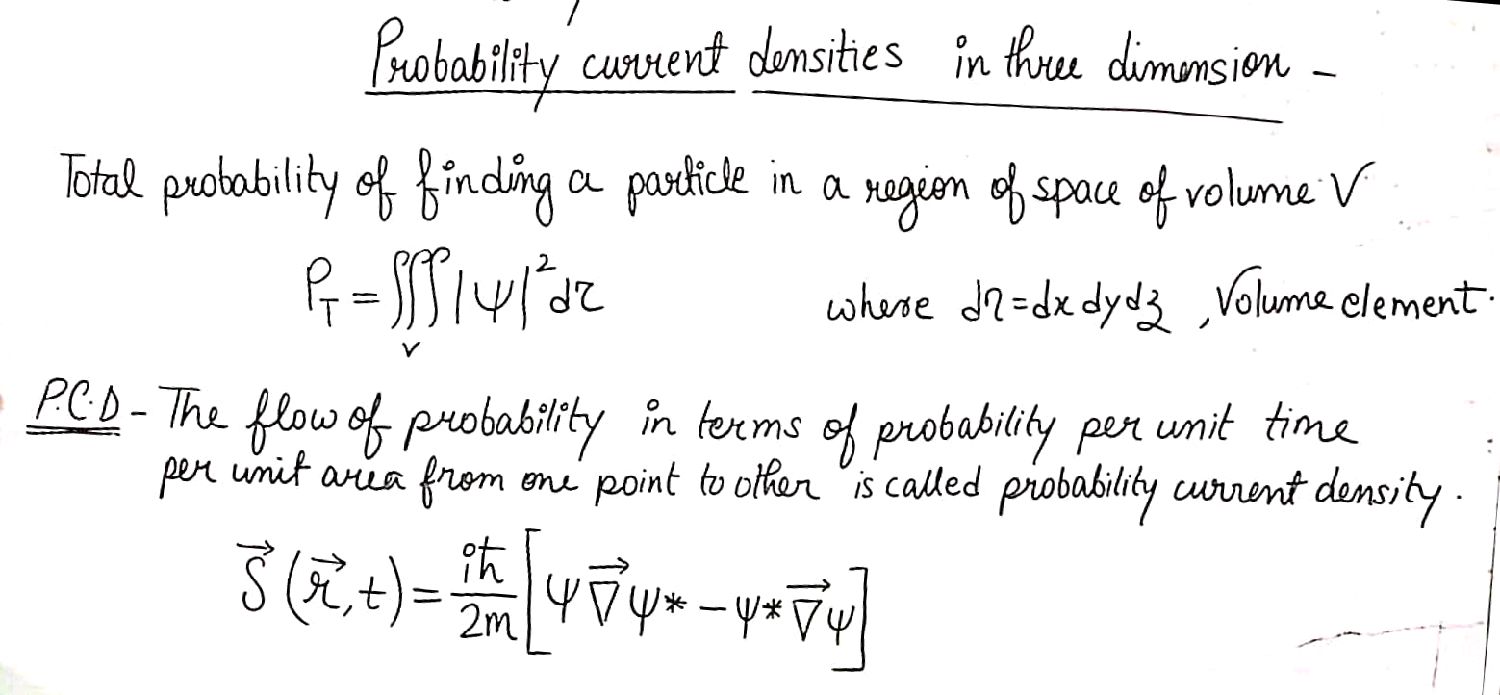 Probability current densities in three dimension -
Total probability of finding a particle in a region of space of volume V
P_T = ∭_V |ψ|² dτ where dτ = dx dy dz , Volume element.
P.C.D - The flow of probability in terms of probability per unit time
per unit area from one point to other is called probability current density.
S⃗ (r⃗, t) = iħ/2m [ψ ∇⃗ ψ* - ψ* ∇⃗ ψ]